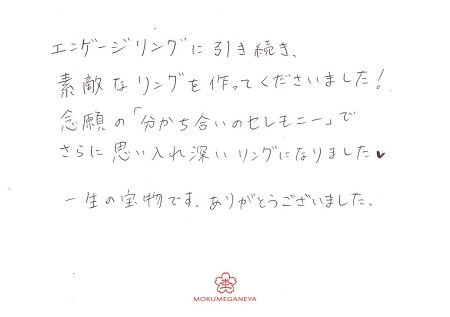 エンゲージリングに引き続き、
素敵なリングを作ってくださいました!
念願の「分かち合いのセレモニー」で
さらに思い入れ深いリングになりました♥
一生の宝物です。ありがとうございました。
MOKUMEGANEYA